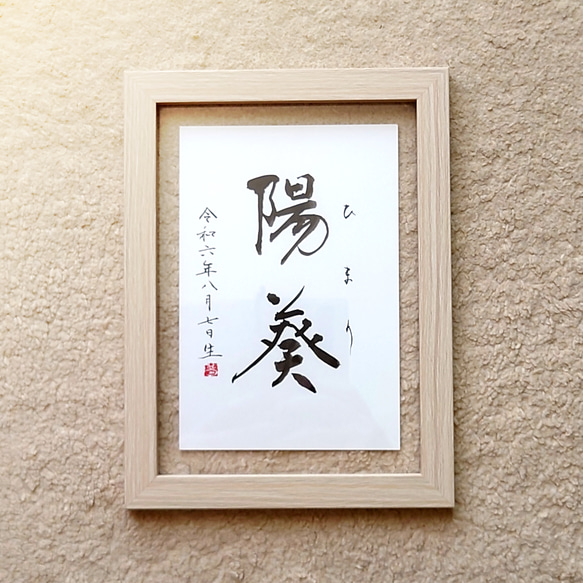 陽葵
ひまり
令和六年八月七日生